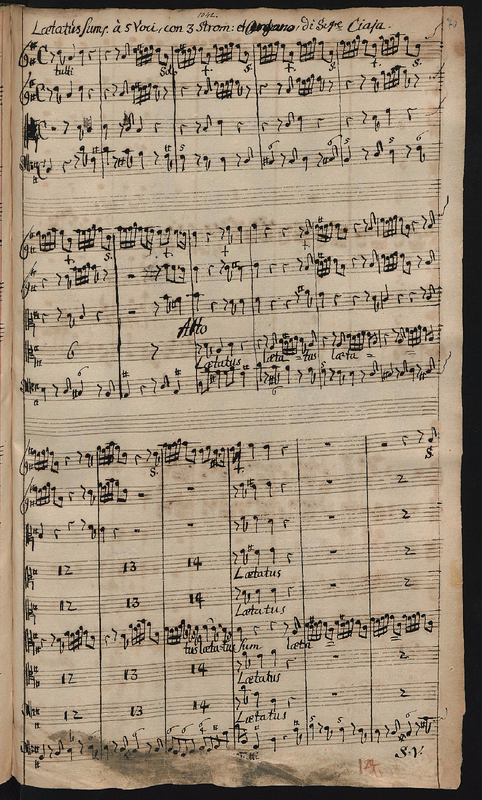 Lætatus sum. à 5 Voci, con 3 Strom: et Organo, di Sigre Ciaja.
tutti
Alto
6 7
Lætatus læta = tus læta =
12 13 14 2
Lætatus
12 13 14 2
Lætatus
tus læta-tus sum læta
12 13 14 2
Lætatus
12 13 14 2
Lætatus
S.V.
14.